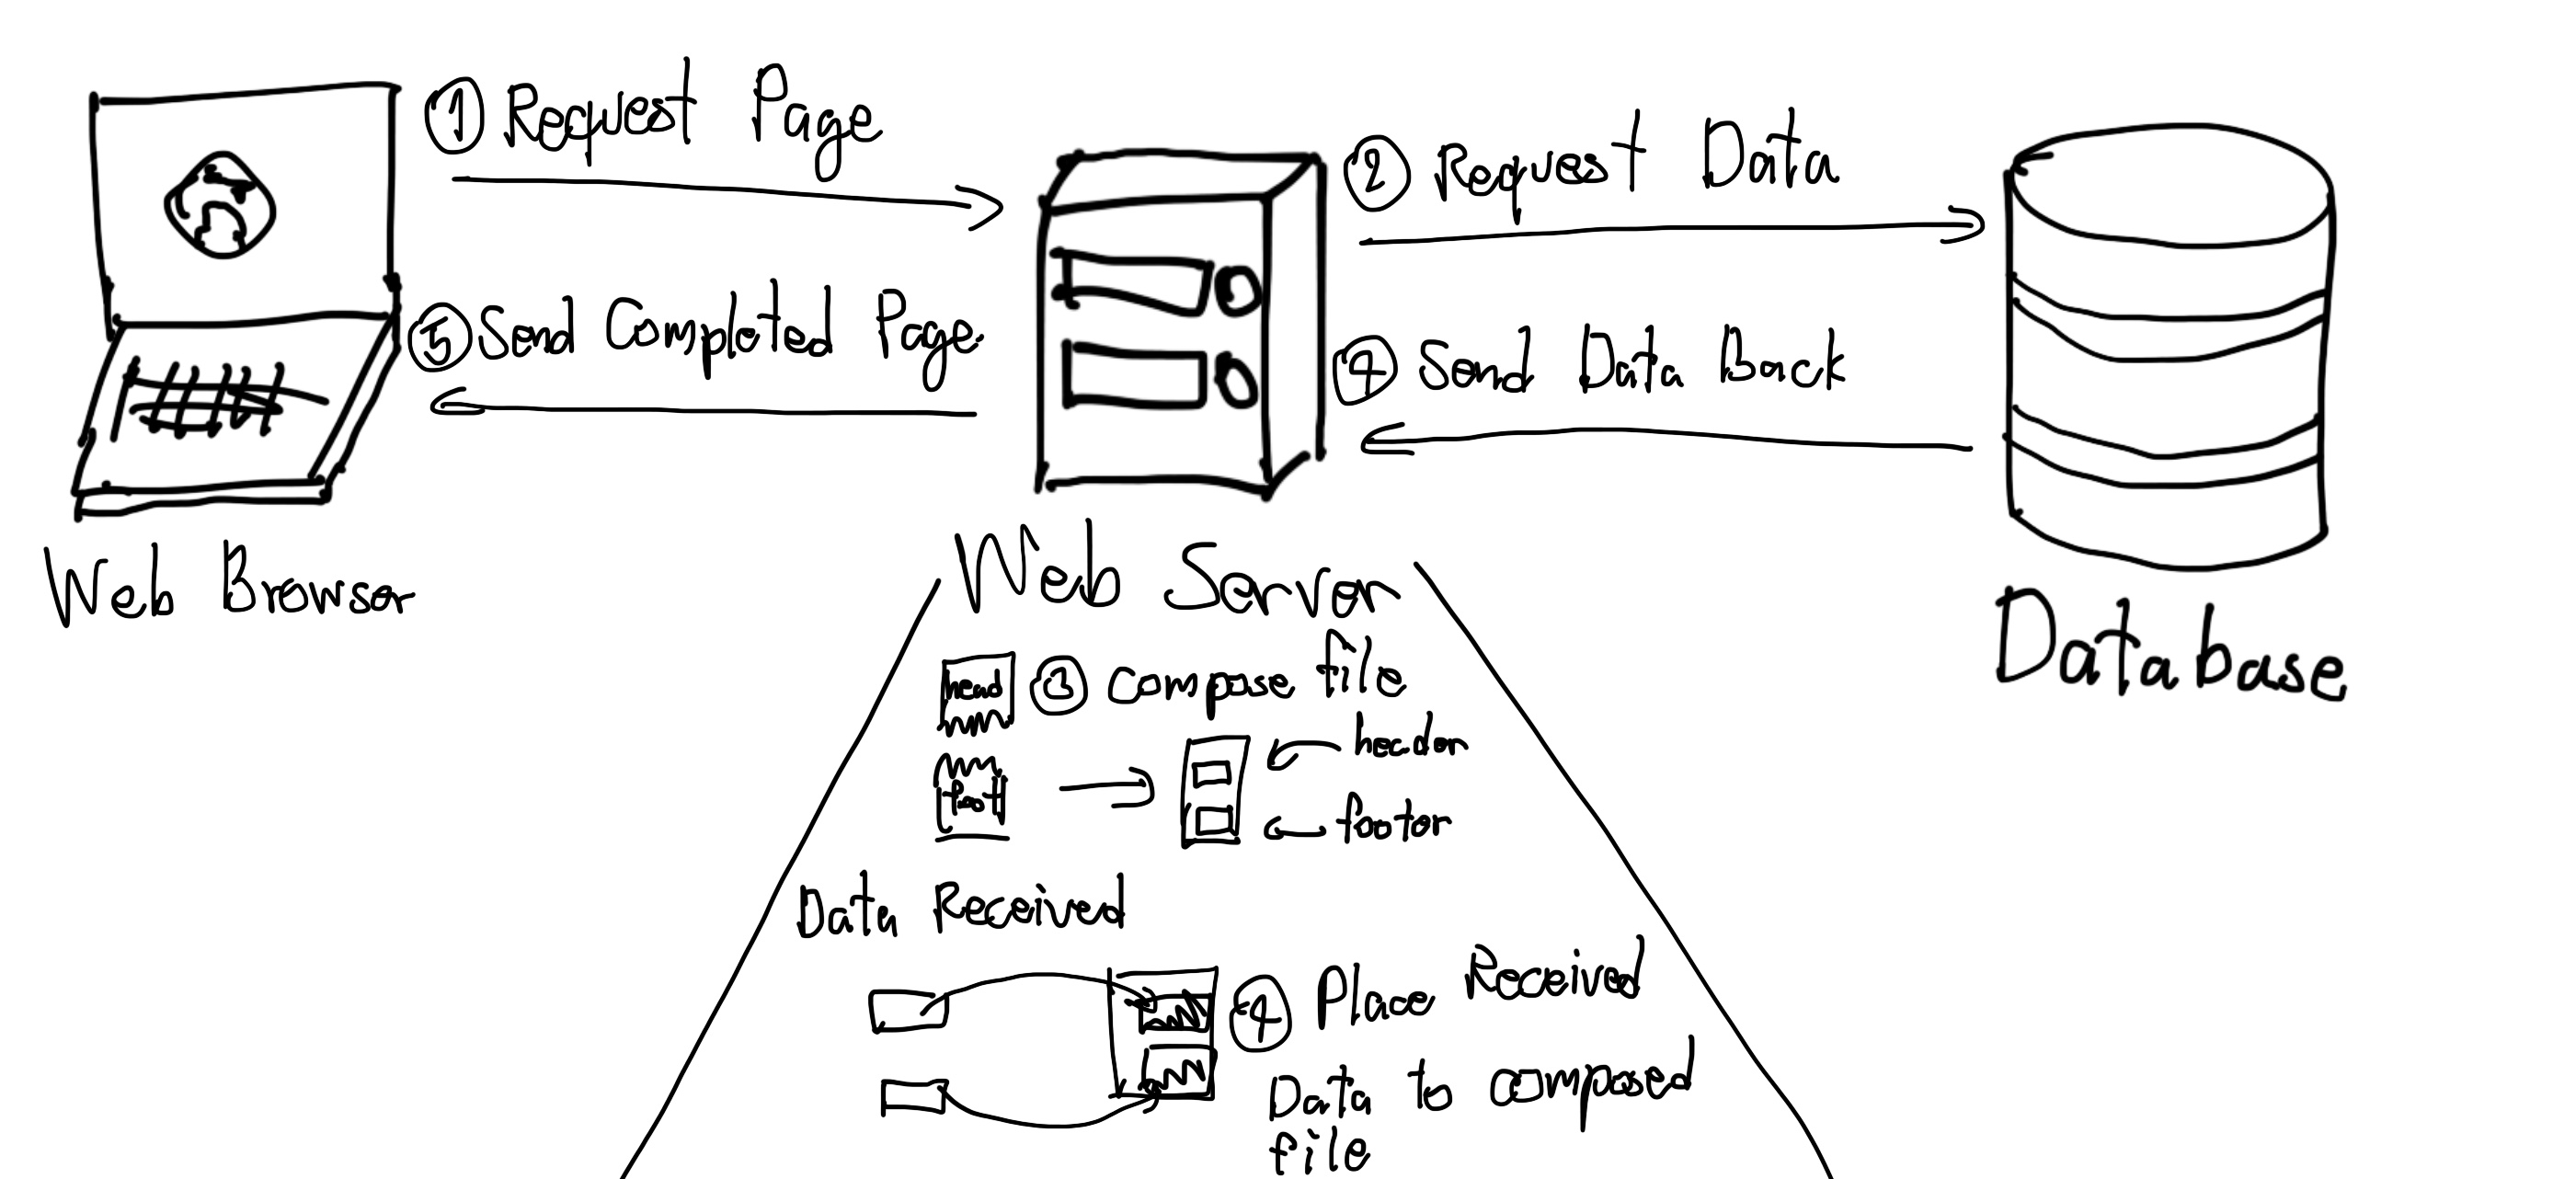 ① Request Page
② Request Data
⑤ Send Completed Page
④ Send Data Back
Web Browser
Web Server
Database
head
③ compose file
foot
header
footer
Data Received
④ Place Received
Data to composed
file